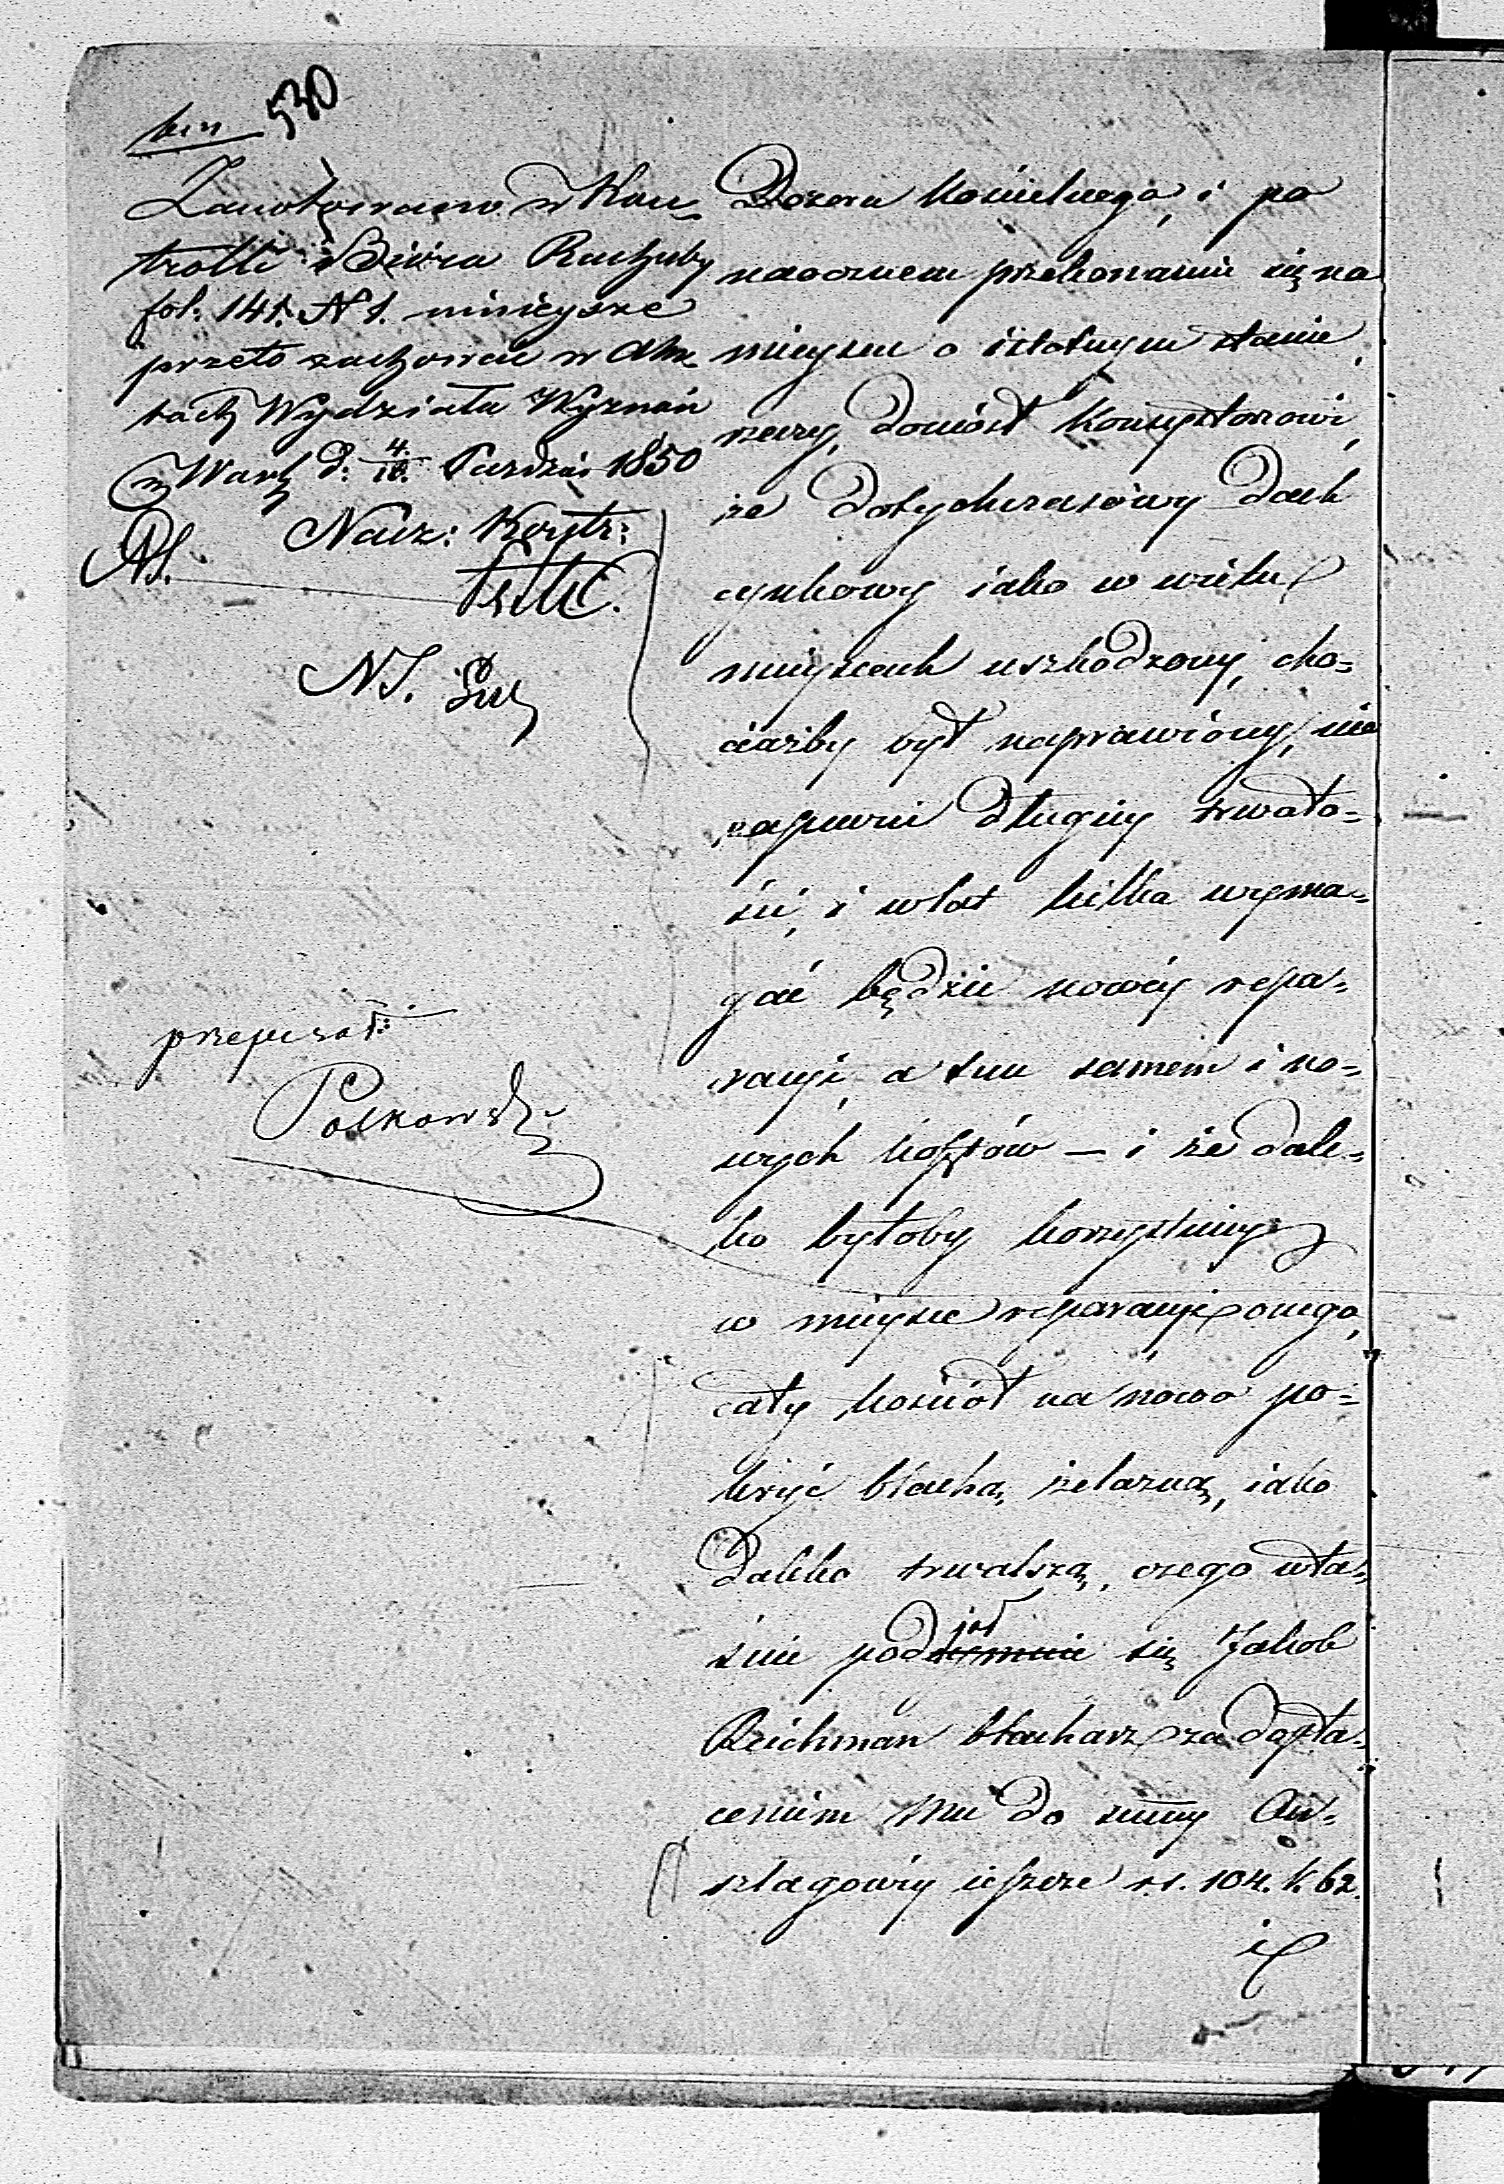 530
Zanotowano w Kon-
trolli Biura Rachuby
fol: 141. N 1. ninieysze
przeto zachować w Ak-
tach Wydziału Wyznań
w Warz d: 4/16. Paździer 1850
Nacz: Kontr:
NS.
przepisał:
Polkowski
Dozoru kościelnego, i po
naocznem przekonaniu się na
mieyscu o istotnym stanie
rzeczy, doniósł Konsystorzowi,
że dotychczasowy dach
cynkowy iako w wielu
mieyscach uszkodzony, cho=
ciażby był naprawiony, nie
zapewni długiey trwało=
ści, i w lat kilka wyma=
gać będzie nowéy repa=
racyi, a tem samem i no=
wych kosztów — i że dale=
ko byłoby korzystniey
w mieysce reparacyi onego,
cały kościół na nowo po=
kryć blachą żelazną, iako
daleko trwalszą, czego wła=
śnie podjął się Jakob
Reichman blacharz za dopła=
ceniem mu do summy An=
szlagowéy ieszcze rs. 104. k. 62.
i